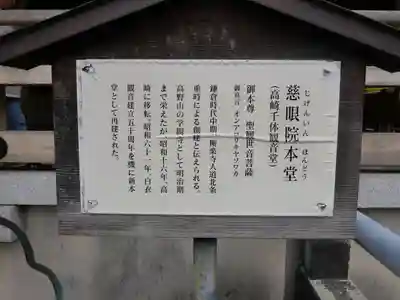 じげんいん ほんどう
慈眼院本堂
(高崎千体観音堂)
御本尊 聖観世音菩薩
御真言 オンアロリキヤソワカ
鎌倉時代中期、極楽寺入道北条
重時による創建と伝えられる。
高野山の学問寺として明治期
まで栄えたが、昭和十六年、高
崎に移転。昭和六十一年、白衣
観音建立五十周年を機に新本
堂として再建された。